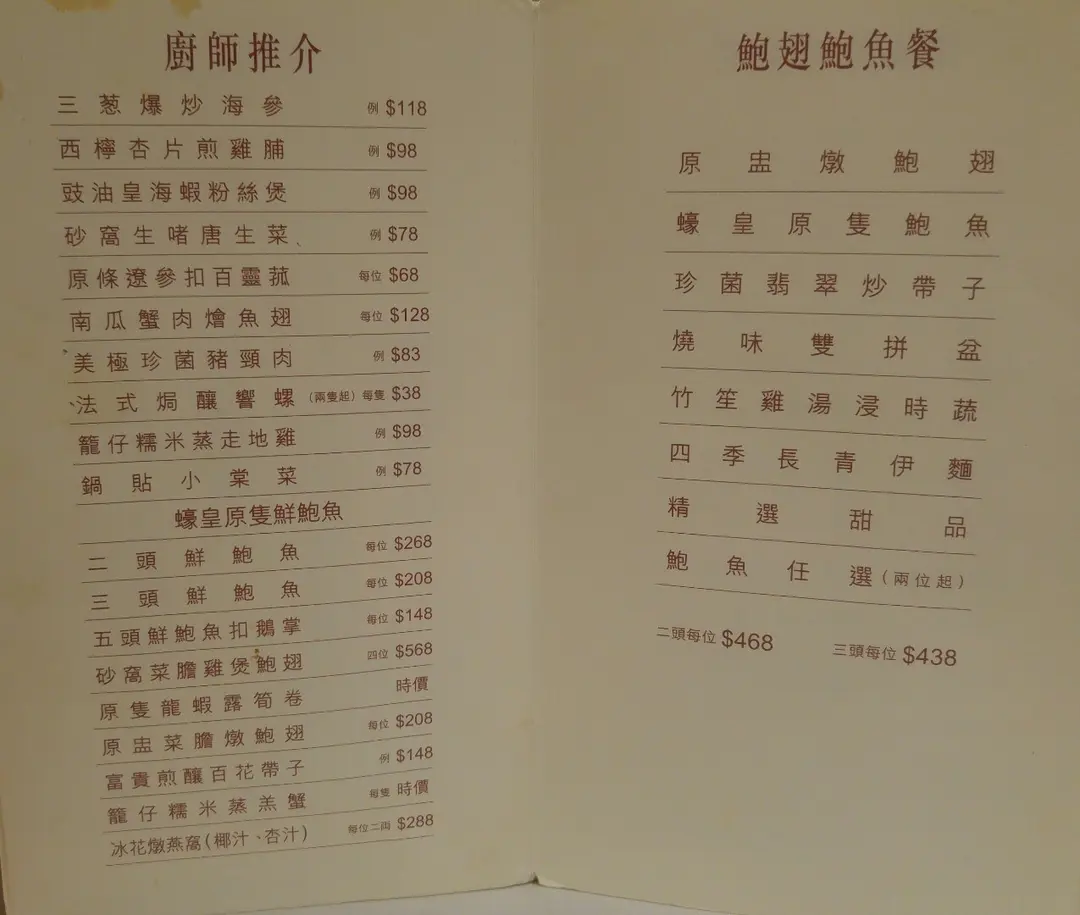 廚師推介
三葱爆炒海參 例 $118
西檸杏片煎雞脯 例 $98
豉油皇海蝦粉絲煲 例 $98
砂窩生啫唐生菜 例 $78
原條遼參扣百靈菰 每位 $68
南瓜蟹肉燴魚翅 每位 $128
美極珍菌豬頸肉 例 $83
法式焗釀響螺 (兩隻起) 每隻 $38
籠仔糯米蒸走地雞 例 $98
鍋貼小棠菜 例 $78
蠔皇原隻鮮鮑魚
二頭鮮鮑魚 每位 $268
三頭鮮鮑魚 每位 $208
五頭鮮鮑魚扣鵝掌 每位 $148
砂窩菜膽雞煲鮑翅 四位 $568
原隻龍蝦露筍卷 時價
原盅菜膽燉鮑翅 每位 $208
富貴煎釀百花帶子 例 $148
籠仔糯米蒸羔蟹 每隻 時價
冰花燉燕窩(椰汁、杏汁) 每位二両 $288
鮑翅鮑魚餐
原盅燉鮑翅
蠔皇原隻鮑魚
珍菌翡翠炒帶子
燒味雙拼盆
竹笙雞湯浸時蔬
四季長青伊麵
精選甜品
鮑魚任選(兩位起)
二頭每位 $468 三頭每位 $438